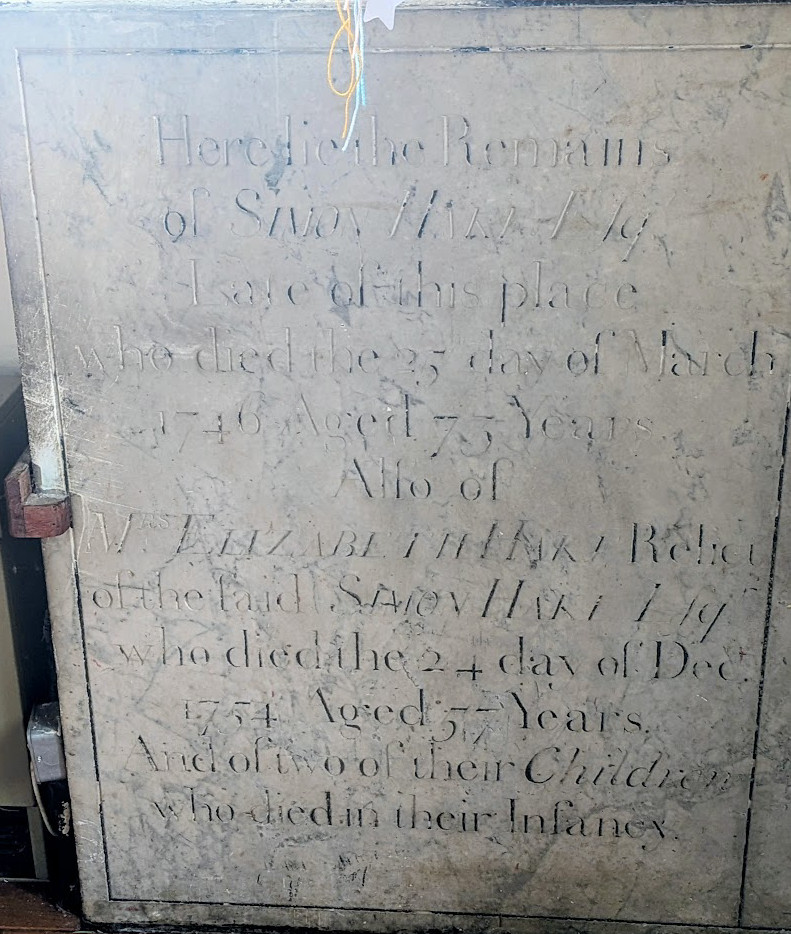 Here lie the Remains
of SIMON HART Esq
Late of this place
who died the 25 day of March
1746 Aged 75 Years.
Alſo of
Mrs ELIZABETH HART Relict
of the ſaid SIMON HART Eſqr
who died the 24 day of Dec.
1754 Aged 57 Years.
And of two of their Children
who died in their Infancy.